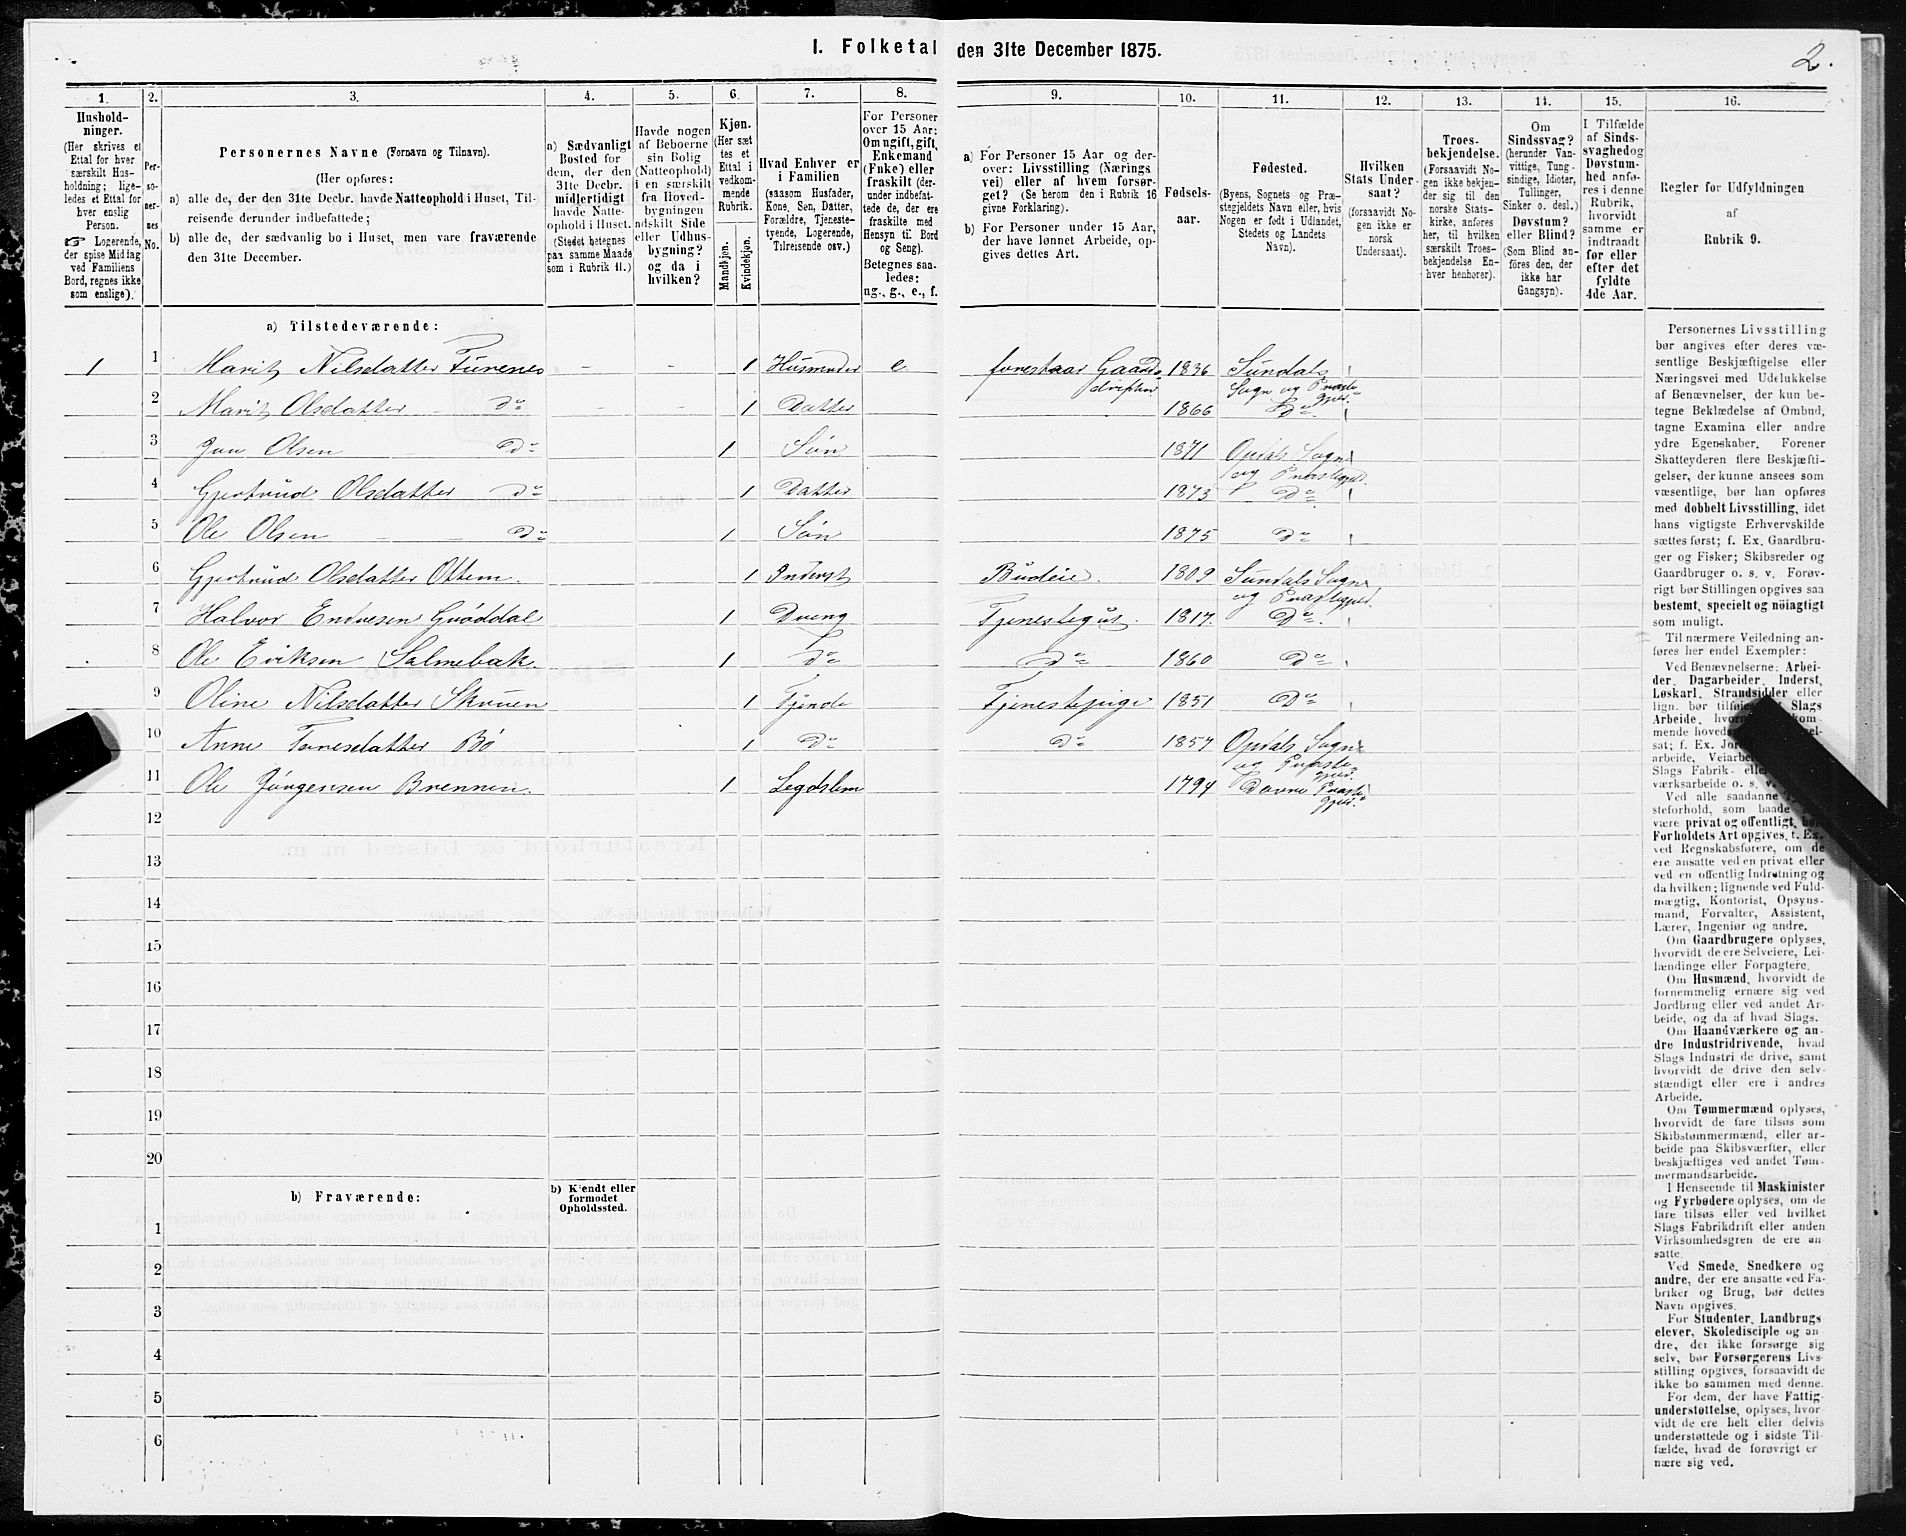 I. Folketal den 31te December 1875.
2.
1.
Hushold-
ninger.
(Her skrives et
Ettal for hver
særskilt Hus-
holdning; lige-
ledes et Ettal for
hver enslig
Person.
☞ Logerende,
der spise Middag
ved Familiens
Bord, regnes ikke
som enslige).
2.
Per-
so-
ner-
nes
No.
3.
Personernes Navne (Fornavn og Tilnavn).
(Her opføres:
a) alle de, der den 31te Decbr. havde Natteophold i Huset, Til-
reisende derunder indbefattede;
b) alle de, der sædvanlig bo i Huset, men vare fraværende
den 31te December.
4.
a) Sædvanligt
Bosted for
dem, der den
31te Decbr.
midlertidigt
havde Natte-
ophold i Huset.
(Stedet betegnes
paa samme Maade
som i Rubrik 11.)
5.
Havde nogen
af Beboerne
sin Bolig
(Natteophold)
i en særskilt
fra Hoved-
bygningen
adskilt Side
eller Udhus-
bygning?
og da i
hvilken?
6.
Kjøn.
(Her sæt-
tes et
Ettal i
vedkom-
mende
Rubrik.
Mandkjøn.
Kvindekjøn.
7.
Hvad Enhver er
i Familien
(saasom Husfader,
Kone, Søn, Datter,
Forældre, Tjeneste-
tyende, Logerende,
Tilreisende osv.)
8.
For Personer
over 15 Aar:
Om ugift, gift,
Enkemand
(Enke) eller
fraskilt (der-
under indbefat-
tede de, der ere
fraskilte med
Hensyn til Bord
og Seng).
Betegnes saa-
ledes:
ug., g., e., f.
9.
a) For Personer 15 Aar og der-
over: Livsstilling (Nærings-
vei) eller af hvem forsør-
get? (Se herom den i Rubrik 16
givne Forklaring).
b) For Personer under 15 Aar,
der have lønnet Arbeide, op-
gives dettes Art.
10.
Fødsels-
aar.
11.
Fødested.
(Byens, Sognets og Præ-
stegjeldets Navn eller, hvis
Nogen er født i Udlandet,
Stedets og Landets
Navn).
12.
Hvilken
Stats Under-
saat?
(forsaavidt No-
gen ikke er
norsk
Undersaat).
13.
Troes-
bekjendelse.
(Forsaavidt No-
gen ikke bekjen-
der sig til den
norske Stats-
kirke, anføres
her, til hvilken
særskilt Troes-
bekjendelse En-
hver henhører).
14.
Om
Sindssvag?
(herunder Van-
vittige, Tung-
sindige, Idioter,
Tullinger,
Sinker o. desl.)
Døvstum?
eller Blind?
(Som Blind an-
føres den, der
ikke har
Gangsyn).
15.
I Tilfælde
af Sinds-
svaghed og
Døvstum-
hed anfø-
res i denne
Rubrik,
hvorvidt
samme er
indtraadt
før eller
efter det
fyldte
4de Aar.
16.
Regler for Udfyldningen
af
Rubrik 9.
a) Tilstedeværende:
1 1 Marit Nilsdatter Furenes - - 1 Husmoder e. forestaar Gaards- 1836 Sundals
driften Sogn og Præste-
gjeld.
2 Marit Olsdatter do - - 1 Datter 1866 Do
3 Jon Olsen do 1 Søn 1871 Opdals Sogn
og Præstegjeld.
4 Gjertrud Olsdatter do 1 Datter 1873 Do
5 Ole Olsen do 1 Søn 1875 Do
6 Gjertrud Olsdatter Ottem. 1 Inderst Budeie. 1809 Sundals Sogn
og Præstegjeld.
7 Halvor Endresen Grøddal 1 Dreng Tjenestegut. 1817. Do
8 Ole Eriksen Salmebæk. 1 do do 1860 Do
9 Oline Nilsdatter Skruen 1 Tjende Tjenestepige 1851 Do
10 Anne Toresdatter Bø 1 do do 1857 Opdals Sogn
og Præste-
gjeld.
11 Ole Jørgensen Brennen. 1 Legdslem 1794 Dovre Præste-
gjeld.
12
13
14
15
16
17
18
19
20
b) Fraværende:
b) Kjendt eller
formodet
Opholdssted.
1
2
3
4
5
6
Personernes Livsstilling
bør angives efter deres væ-
sentlige Beskjæftigelse eller
Næringsvei med Udelukkelse
af Benævnelser, der kun be-
tegne Beklædelse af Ombud,
tagne Examina eller andre
ydre Egenskaber. Forener
Skatteyderen flere Beskjæfti-
gelser, der kunne ansees som
væsentlige, bør han opføres
med dobbelt Livsstilling, idet
hans vigtigste Erhvervskilde
sættes først; f. Ex. Gaardbru-
ger og Fisker; Skibsreder og
Gaardbruger o. s. v. Forøv-
rigt bør Stillingen opgives saa
bestemt, specielt og nøiagtigt
som muligt.
Til nærmere Veiledning an-
føres her endel Exempler:
Ved Benævnelserne: Arbei-
der, Dagarbeider, Inderst,
Løskarl, Strandsidder eller
lign. bør tilføies Slags
Arbeide,
mende hoved
sat; f. Ex.
arbeide, Veiarbe
Slags Fabrik- elle
værksarbeide o. s. v.
Ved alle saadanne
steforhold, som baade
være privat og offentligt, bør
Forholdets Art opgives, t. Ex.
ved Regnskabsførere, om de
ere ansatte ved en privat eller
ved en offentlig Indretning og
da hvilken; lignende ved Fuld-
mægtig, Kontorist, Opsyns-
mand, Forvalter, Assistent,
Lærer, Ingeniør og andre.
Om Gaardbrugere oplyses,
hvorvidt de ere Selveiere, Lei-
lændinge eller Forpagtere.
Om Husmænd, hvorvidt de
fornemmelig ernære sig ved
Jordbrug eller ved andet Ar-
beide, og da af hvad Slags.
Om Haandværkere og an-
dre Industridrivende, hvad
Slags Industri de drive, samt
hvorvidt de drive den selv-
stændigt eller ere i andres
Arbeide.
Om Tømmermænd oplyses,
hvorvidt de fare tilsøs som
Skibstømmermænd, eller ar-
beide paa Skibsværfter, eller
beskjæftiges ved andet Tøm-
mermandsarbeide.
I Henseende til Maskinister
og Fyrbødere oplyses, om de
fare tilsøs eller ved hvilket
Slags Fabrikdrift eller anden
Virksomhedsgren de ere an-
satte.
Ved Smede, Snedkere og
andre, der ere ansatte ved Fa-
briker og Brug, bør dettes
Navn opgives.
For Studenter, Landbrugs-
elever, Skoledisciple og an-
dre, der ikke forsørge sig
selv, bør Forsørgerens Livs-
stilling opgives, forsaavidt de
ikke bo sammen med denne.
For dem, der have Fattig-
understøttelse, oplyses, hvor-
vidt de ere helt eller delvis
understøttede og i sidste Til-
fælde, hvad de forøvrigt er
nære sig ved.